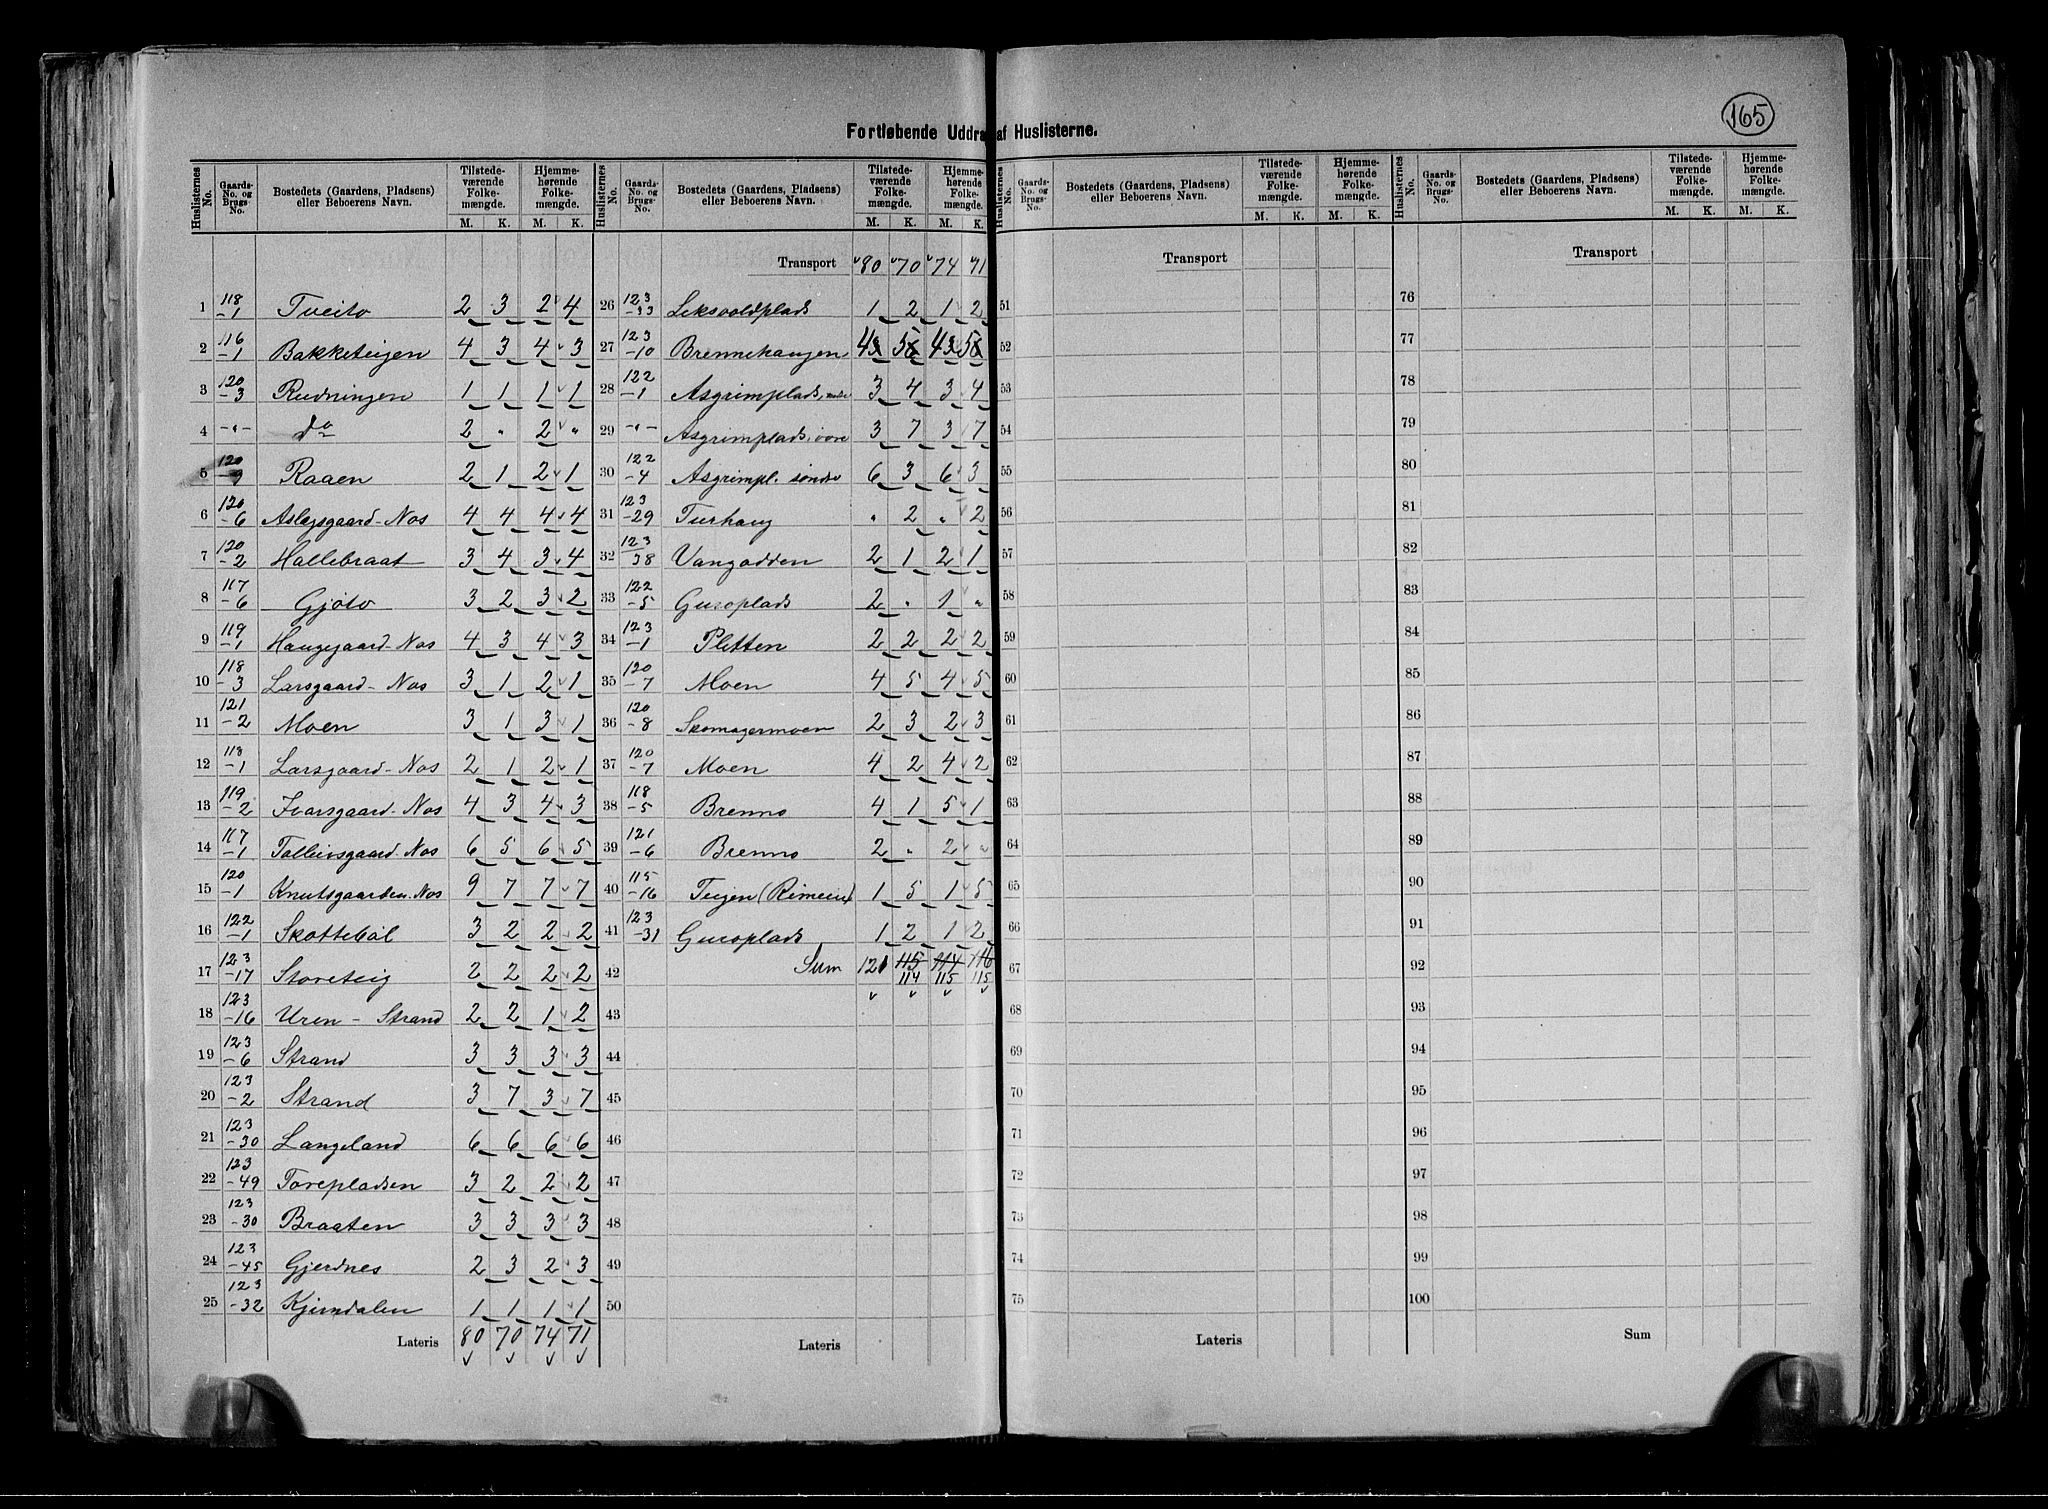 165
Fortløbende Uddra af Huslisterne.
Huslisternes No. Gaards-No. og Brugs-No. Bostedets (Gaardens, Pladsens) eller Beboerens Navn. Tilstedeværende Folkemængde. M. K. Hjemmehørende Folkemængde. M. K.
1 118 -1 Tveito 2 3 2 4
2 116 -1 Bakketeigen 4 3 4 3
3 120 -3 Rudningen 1 1 1 1
4 -"- do 2 " 2 "
5 120 -9 Raaen 2 1 2 1
6 120 -6 Aslegsgaard-Nos 4 4 4 4
7 120 -2 Hallebraat 3 4 3 4
8 117 -6 Gjøto 3 2 3 2
9 119 -1 Haugegaard-Nos 4 3 4 3
10 118 -3 Larsgaard-Nos 3 1 2 1
11 121 -2 Moen 3 1 3 1
12 113 -1 Larsgaard-Nos 2 1 2 1
13 119 -2 Ivarsgaard-Nos 4 3 4 3
14 117 -1 Tolleivsgaard-Nos 6 5 6 5
15 120 -1 Knutsgaarden-Nos 9 7 7 7
16 122 -1 Skottebøl 3 2 2 2
17 123 -17 Storeteig 2 2 2 2
18 123 -16 Uren - Strand 2 2 1 2
19 123 -6 Strand 3 3 3 3
20 123 -2 Strand 3 7 3 7
21 123 -30 Langeland 6 6 6 6
22 123 -49 Torepladsen 3 2 2 2
23 123 -30 Braaten 3 3 3 3
24 123 -45 Gjerdnes 2 3 2 3
25 123 -32 Kjirndalen 1 1 1 1
Lateris 80 70 74 71
Huslisternes No. Gaards-No. og Brugs-No. Bostedets (Gaardens, Pladsens) eller Beboerens Navn. Tilstedeværende Folkemængde. M. K. Hjemmehørende Folkemængde. M. K.
Transport 80 70 74 71
26 123 -33 Leksvoldplads 1 2 1 2
27 123 -10 Brennehaugen 4 5 4 5
28 122 -1 Asgrimplads, 3 4 3 4
29 -"- Asgrimplads, øvre 3 7 3 7
30 122 -4 Asgrimpl. søndre 6 3 6 3
31 123 -29 Turhaug " 2 " 2
32 123 38 Vangodden 2 1 2 1
33 122 -5 Guroplads 2 " 1 "
34 123 -1 Pletten 2 2 2 2
35 120 -7 Moen 4 5 4 5
36 120 -8 Skomagermoen 2 3 2 3
37 120 -7 Moen 4 2 4 2
38 118 -5 Brenno 4 1 5 1
39 121 -6 Brenno 2 " 2 "
40 115 -16 Teigen 1 5 1 5
41 123 -31 Guroplads 1 2 1 2
42 Sum 121 115 114 116
114 115 115
43
44
45
46
47
48
49
50
Lateris
Huslisternes No. Gaards-No. og Brugs-No. Bostedets (Gaardens, Pladsens) eller Beboerens Navn. Tilstedeværende Folkemængde. M. K. Hjemmehørende Folkemængde. M. K.
Transport
51
52
53
54
55
56
57
58
59
60
61
62
63
64
65
66
67
68
69
70
71
72
73
74
75
Lateris
Huslisternes No. Gaards-No. og Brugs-No. Bostedets (Gaardens, Pladsens) eller Beboerens Navn. Tilstedeværende Folkemængde. M. K. Hjemmehørende Folkemængde. M. K.
Transport
76
77
78
79
80
81
82
83
84
85
86
87
88
89
90
91
92
93
94
95
96
97
98
99
100
Sum